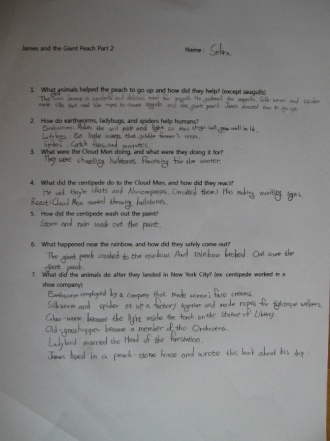 James and the Giant Peach Part 2 Name : Selina
1. What animals helped the peach to go up and how did they help? (except seagulls)
The worm became a and delicious meal for seagulls. He the seagulls. Silk worm and spider
made silks and the rope to connect seagulls and the giant peach. James them to go up.
2. How do earthworms, ladybugs, and spiders help humans?
Earthworms: Makes the soil and light so that crops well in it.
Ladybugs: Eat little insects that gobble farmer's crops.
Spiders: Catch flies and mosquitos.
3. What were the Cloud Men doing, and what were they doing it for?
They were shooting hailstones. Practicing for the winter.
4. What did the centipede do to the Cloud Men, and how did they react?
He said they're idiots and Nincompoops. (insulted them) Also making insulting signs.
React: Cloud Men started throwing hailstones.
5. How did the centipede wash out the paint?
Storm and rain wash out the paint.
6. What happened near the rainbow, and how did they safely come out?
The giant peach crashed to the rainbow. And rainbow broked. Cut over the
giant peach.
7. What did the animals do after they landed in New York City? (ex centipede worked in a
shoe company)
Earthworm employed by a company that made women's face creams.
Silkworm and spider set up a factory together and made ropes for tightrope walkers.
Glow-worm became the light inside the torch on the Statue of Liberty.
Old-grasshopper became a member of the Orchestra.
Ladybird married the Head of the
James lived in a peach-stone house and wrote this book about his trip.